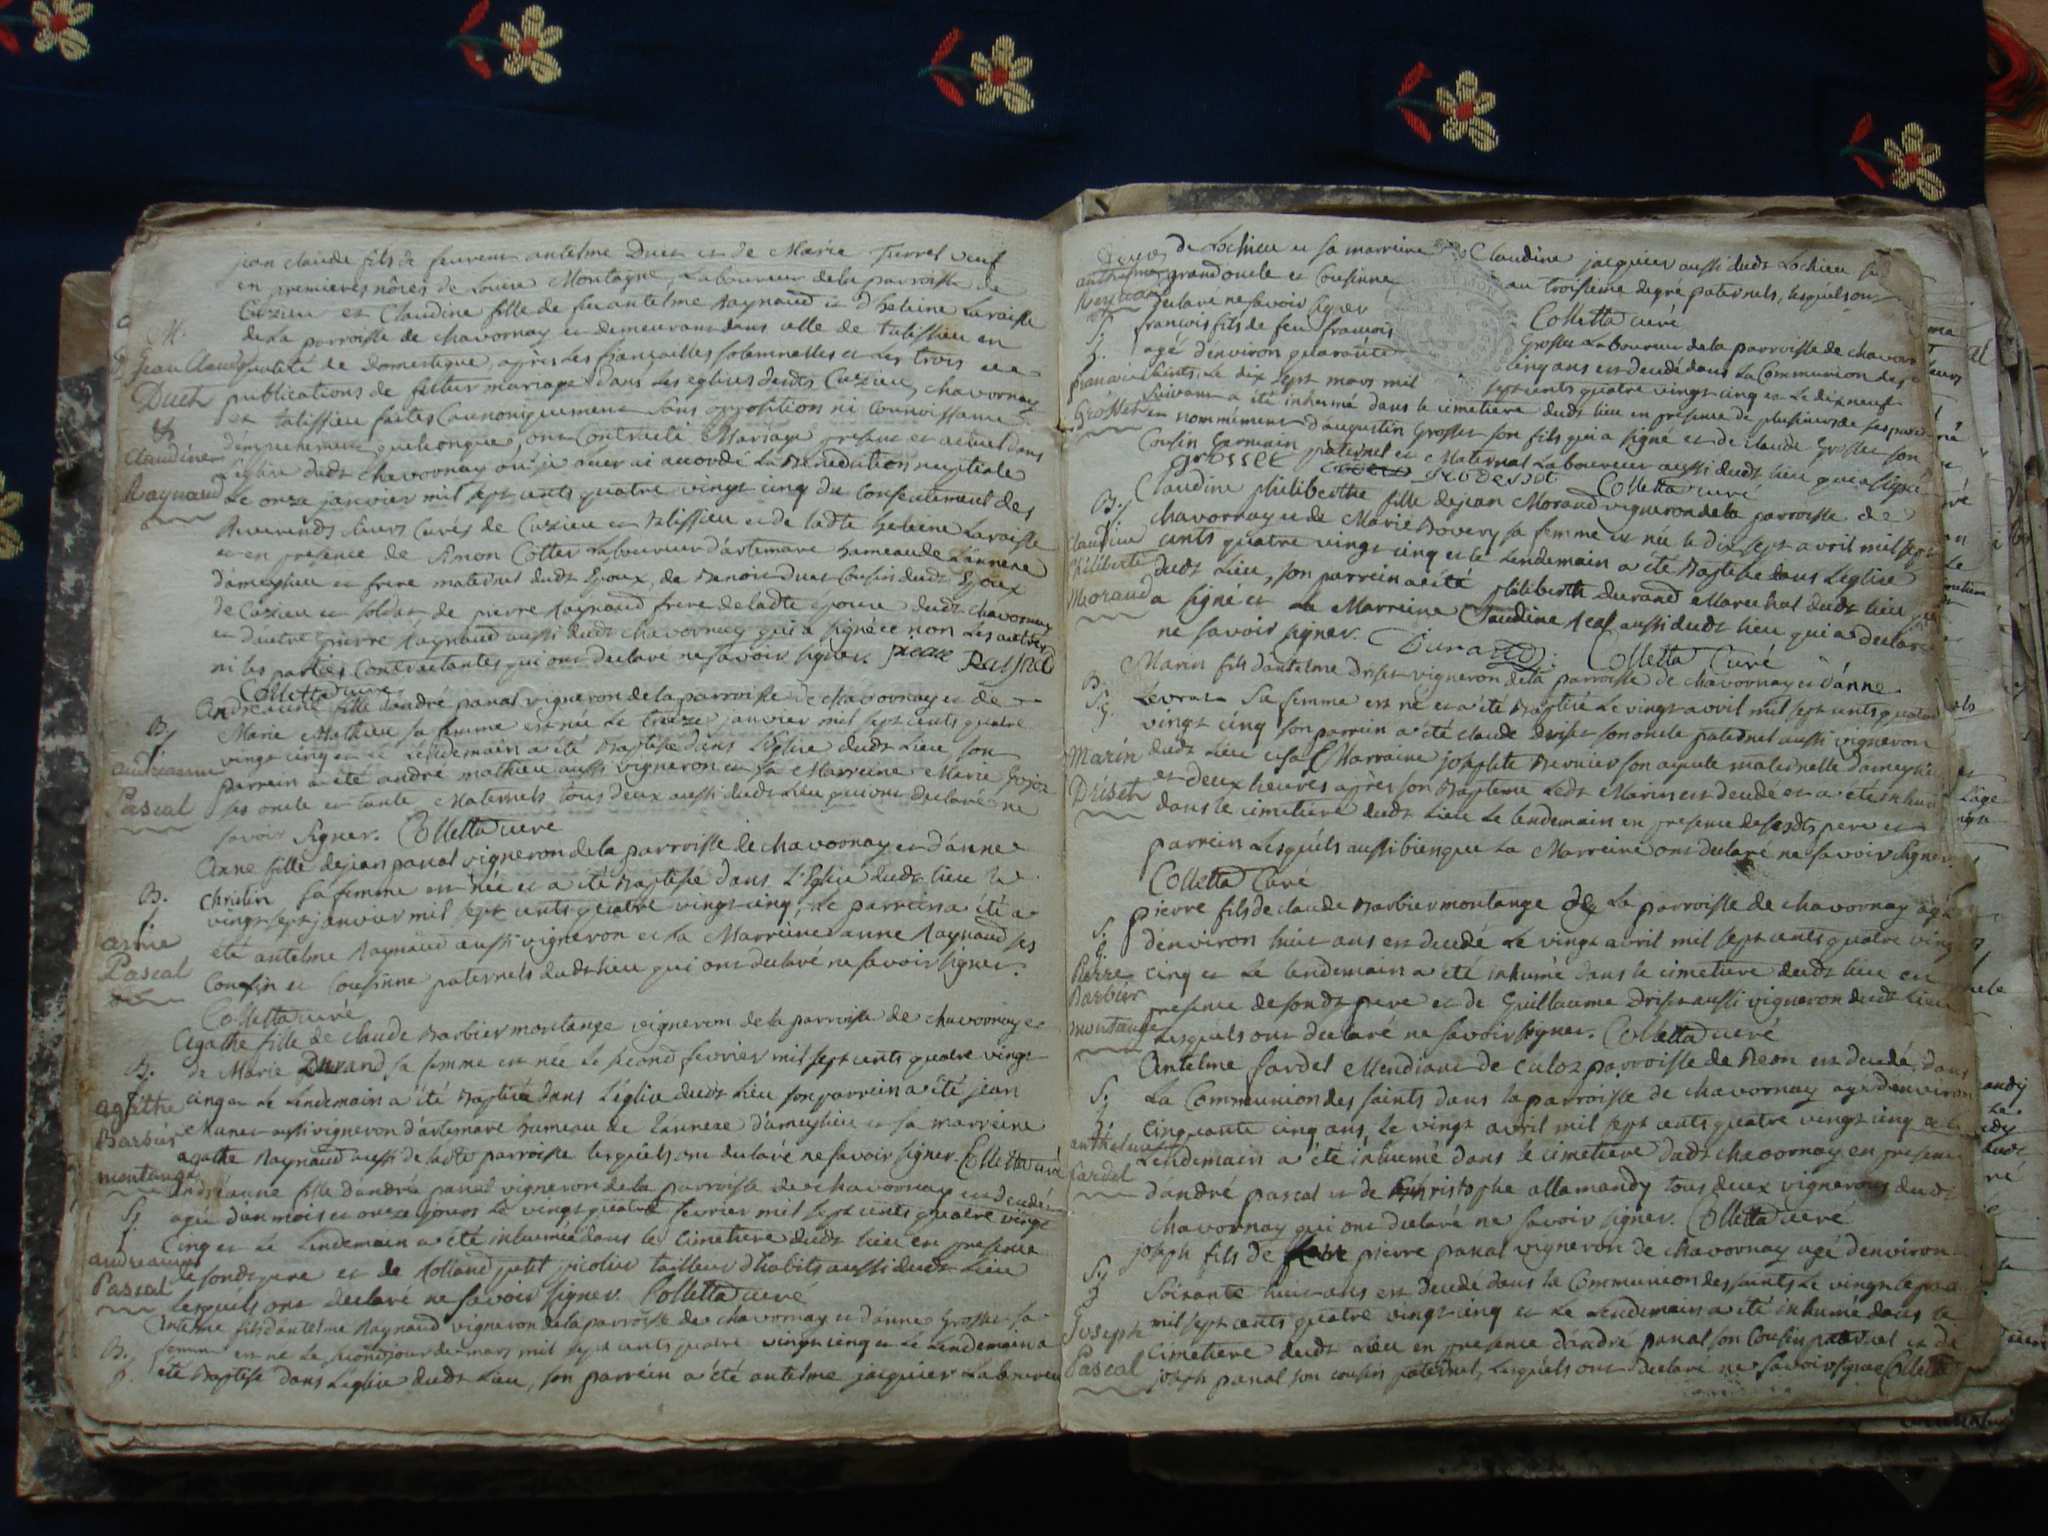 jean claude fils de feurent antelme Duet et de Marie Turrel veuf
en premieres nôces de Louise Montagne, Laboureur de la parroisse de
Cuzieu et Claudine fille de feu antelme Raynaud et d'heleine Laraisse
de la parroisse de chavornay et demeurant dans celle de talissieu en
qualité de Domestique, après les fiançailles solemnelles et les trois
publications de futur mariage dans les eglises desdts Cuzieu, chavornay
et talissieu faites Canoniquement sans opposition ni connoissance
d'empechement quelconque, ont Contracté Mariage present et actuel dans
L'église dudt Chavornay où je leur ai accordé La Benediction nuptiale
Le onze janvier mil sept cents quatre vingt cinq du Consentement des
Reverends sieurs Curés de Cuzieu et talissieu et de ladte heleine Laraisse
et en presence de simon Cottet Laboureur d'artemare hameau de L'annexe
d'ameyzieu et frere maternel dudt Epoux, de Benoit Duet Cousin dudt Epoux
de Cuzieu et soldat, de pierre Raynaud frere de ladte epouse dudt chavornay
et d'autre pierre Raynaud aussi dudt chavornay qui a signé et non Les autres
ni les parties Contractantes qui ont declaré ne savoir signer. pierre Raynaud
Colletta curé
M.
Jean Claude
Duet
&
Claudine
Raynaud
Andréanne fille d'andré pascal vigneron de la parroisse de chavornay et de
Marie Mathieu sa femme est née Le treize janvier mil sept cents quatre
vingt cinq et Le lendemain a été Baptisée dans L'Eglise dudt Lieu son
parrein a été andré mathieu aussi vigneron et sa Marreine Marie Gojoz
ses oncle et tante Maternels tous deux aussi dudt Lieu qui ont declaré ne
savoir signer. Colletta curé
B.
andreanne
Pascal
Anne fille de jean pascal vigneron de la parroisse de chavornay et d'anne
christin sa femme est née et a été Baptisée dans L'Eglise dudt lieu le
vingt sept janvier mil sept cents quatre vingt cinq, Le parrein a été a
été antelme Raynaud aussi vigneron et La Marreine anne Raynaud ses
Cousin et Cousinne paternels dudt lieu qui ont declaré ne savoir signer.
Colletta curé
B.
anne
Pascal
Agathe fille de claude Barbier montange vigneron de la parroisse de chavornay et
de Marie Durand sa femme est née Le second fevrier mil sept cents quatre vingt
cinq et Le Lendemain a été Baptisée dans L'église dudt Lieu son parrein a été jean
aussi vigneron d'artemare hameau de L'annexe d'ameyzieu et sa marreine
agathe Raynaud aussi de ladte parroisse lesquels ont declaré ne savoir signer. Colletta curé
B.
agathe
Barbier
montange
Andréanne fille d'andré pascal vigneron de la parroisse de chavornay est decedée
agée d'un mois et onze jours Le vingt quatre fevrier mil sept cents quatre vingt
Cinq et Le Lendemain a été inhumée dans le Cimetiere dudt lieu en presence
de sondt pere et de Rolland petit jicolier tailleur d'habits aussi dudt Lieu
lesquels ont declaré ne savoir signer. Colletta curé
S.
andreanne
Pascal
Antelme fils d'antelme Raynaud vigneron de la parroisse de chavornay et d'anne Grosset sa
femme est né Le second jour de mars mil sept cents quatre vingt cinq et Le Lendemain a
été Baptisé dans L'eglise dudt Lieu, son parrein a été antelme jacquier Laboureur
B.
de Lochieu et sa marreine Claudine jacquier aussi dudt Lochieu
grand oncle et Cousinne au troisieme degré paternels, lesquels ont
declaré ne savoir signer Colletta curé
anthelme
Reynaud
françois fils de feu françois Grosset Laboureur de la parroisse de chavornay
agé d'environ quarante cinq ans est decedé dans La Communion des
saints, Le dix sept mars mil sept cents quatre vingt cinq et Le dix neuf
suivant a été inhumé dans le cimetiere dudt lieu en presence de plusieurs de ses parens
et nommément d'augustin Grosset son fils qui a signé et de claude Grosset son
Cousin Germain paternel et Maternel Laboureur aussi dudt lieu qui a signé
Grosset Colletta curé
S.
françois
Grosset
Claudine philiberthe fille de jean Morand vigneron de la parroisse de
chavornay et de Marie Bovery sa femme est née le dix sept avril mil sept
cents quatre vingt cinq et le Lendemain a été Baptisée dans L'eglise
dudt Lieu, son parrein a été philiberth Durand Marechal dudt lieu qui
a signé et La Marreine Claudine Real aussi dudt lieu qui a declaré
ne savoir signer. Durand Colletta Curé
B.
Claudine
Philiberte
Morand
Marin fils d'antelme Driset vigneron de la parroisse de chavornay et d'anne
Levrat sa femme est né et a été Baptisé Le vingt avril mil sept cents quatre
vingt cinq son parrein a été claude Driset son oncle paternel aussi vigneron
dudt Lieu et sa Marraine josephte Bernier son ayeule maternelle d'ameyzieu
et deux heures après son Bapteme Ledt Marin est decedé et a été inhumé
dans le cimetiere dudt Lieu Le lendemain en presence de sesdts pere et
parrein Lesquels aussi bien que La Marreine ont declaré ne savoir signer.
Colletta Curé
B.
S.
Marin
Driset
pierre fils de claude Barbier montange de La parroisse de chavornay agé
d'environ huit ans est decedé Le vingt avril mil sept cents quatre vingt
cinq et Le lendemain a été inhumé dans le cimetiere dudt lieu en
presence de sondt pere et de Guillaume Driset aussi vigneron dudt Lieu
Lesquels ont declaré ne savoir signer. Colletta curé
S.
Pierre
Barbier
montange
Antelme fardel Mendiant de Culoz parroisse de Beon est decedé, dans
La Communion des saints dans la parroisse de chavornay agé d'environ
Cinquante cinq ans, Le vingt avril mil sept cents quatre vingt cinq et le
Lendemain a été inhumé dans le cimetiere dudt chavornay en presence
d'andré pascal et de christophe allamandy tous deux vignerons dudt
chavornay qui ont declaré ne savoir signer. Colletta curé
S.
anthelme
fardel
joseph fils de pierre pascal vigneron de chavornay agé d'environ
soixante huit ans est decedé dans la Communion des saints Le vingt
mil sept cents quatre vingt cinq et Le Lendemain a été inhumé dans le
Cimetiere dudt Lieu en presence d'andré pascal son Cousin paternel et de
joseph pascal son cousin paternel, Lesquels ont declaré ne savoir signer Colletta
S.
Joseph
Pascal